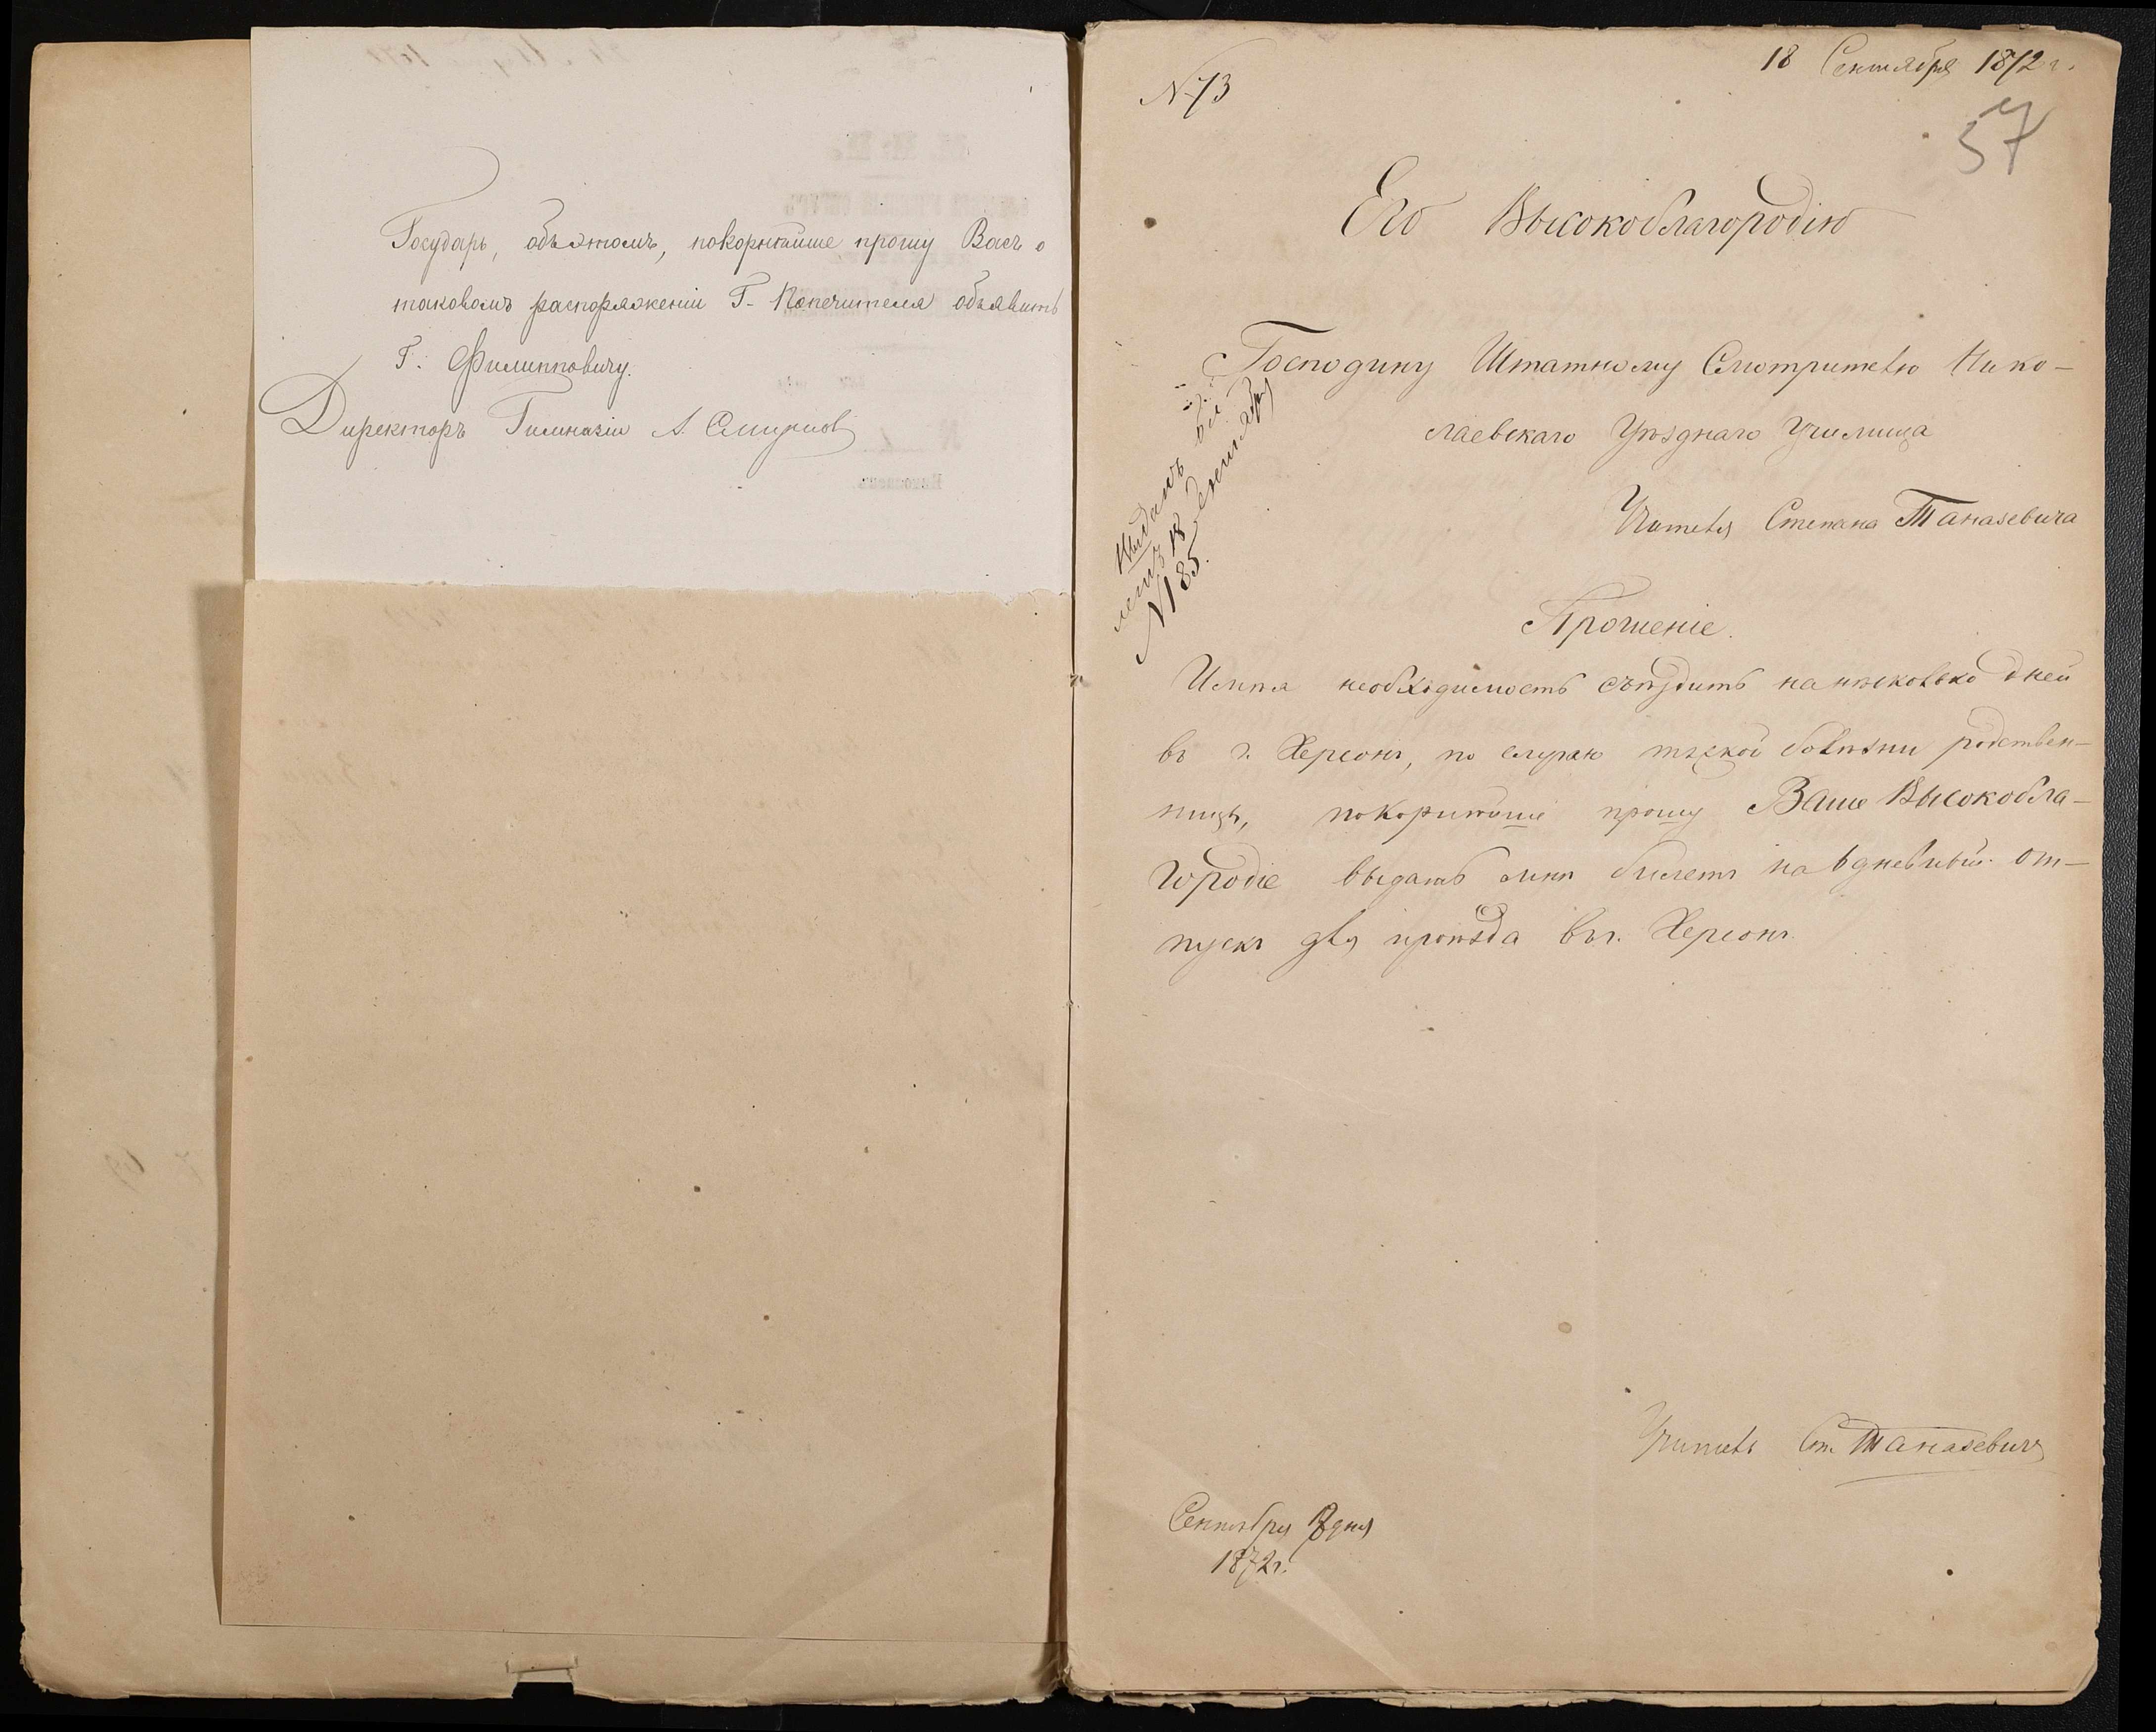 Государь, объ этомъ, покорнѣйше прошу Васъ о
таковомъ распоряженіи Г. Попечителя объявить
Г. Филипповичу.
Директоръ Гимназіи А. Смирнов
18 Сентября 1872 г.
N 73
57
Его Высокоблагородію
Господину Штатному Смотрителю Нико-
лаевскаго Уѣзднаго Училища
Учителя Степана Танасевича
Выданъ би
летъ 18 Сентября
N 185.
Прошеніе.
Имѣя необходимость съѣздить на нѣсколько дней
въ г. Херсонъ, по случаю тяжкой болѣзни родствен-
ницы, покорнѣйше прошу Ваше Высокобла-
городіе выдать мнѣ билетъ на 6 дневный от-
пускъ для проѣзда въ г. Херсонъ.
Учитель Ст. Танасевичъ
Сентября дня
1872 г.